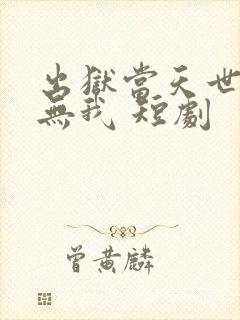 出獄當天世
無我 短劇
曾黃麟